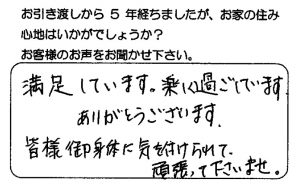 お引き渡しから 5 年経ちましたが、お家の住み
心地はいかがでしょうか？
お客様のお声をお聞かせ下さい。
満足しています。楽しく過ごしています。
ありがとうございます。
皆様御身体に気を付けられて、
頑張って下さいませ。